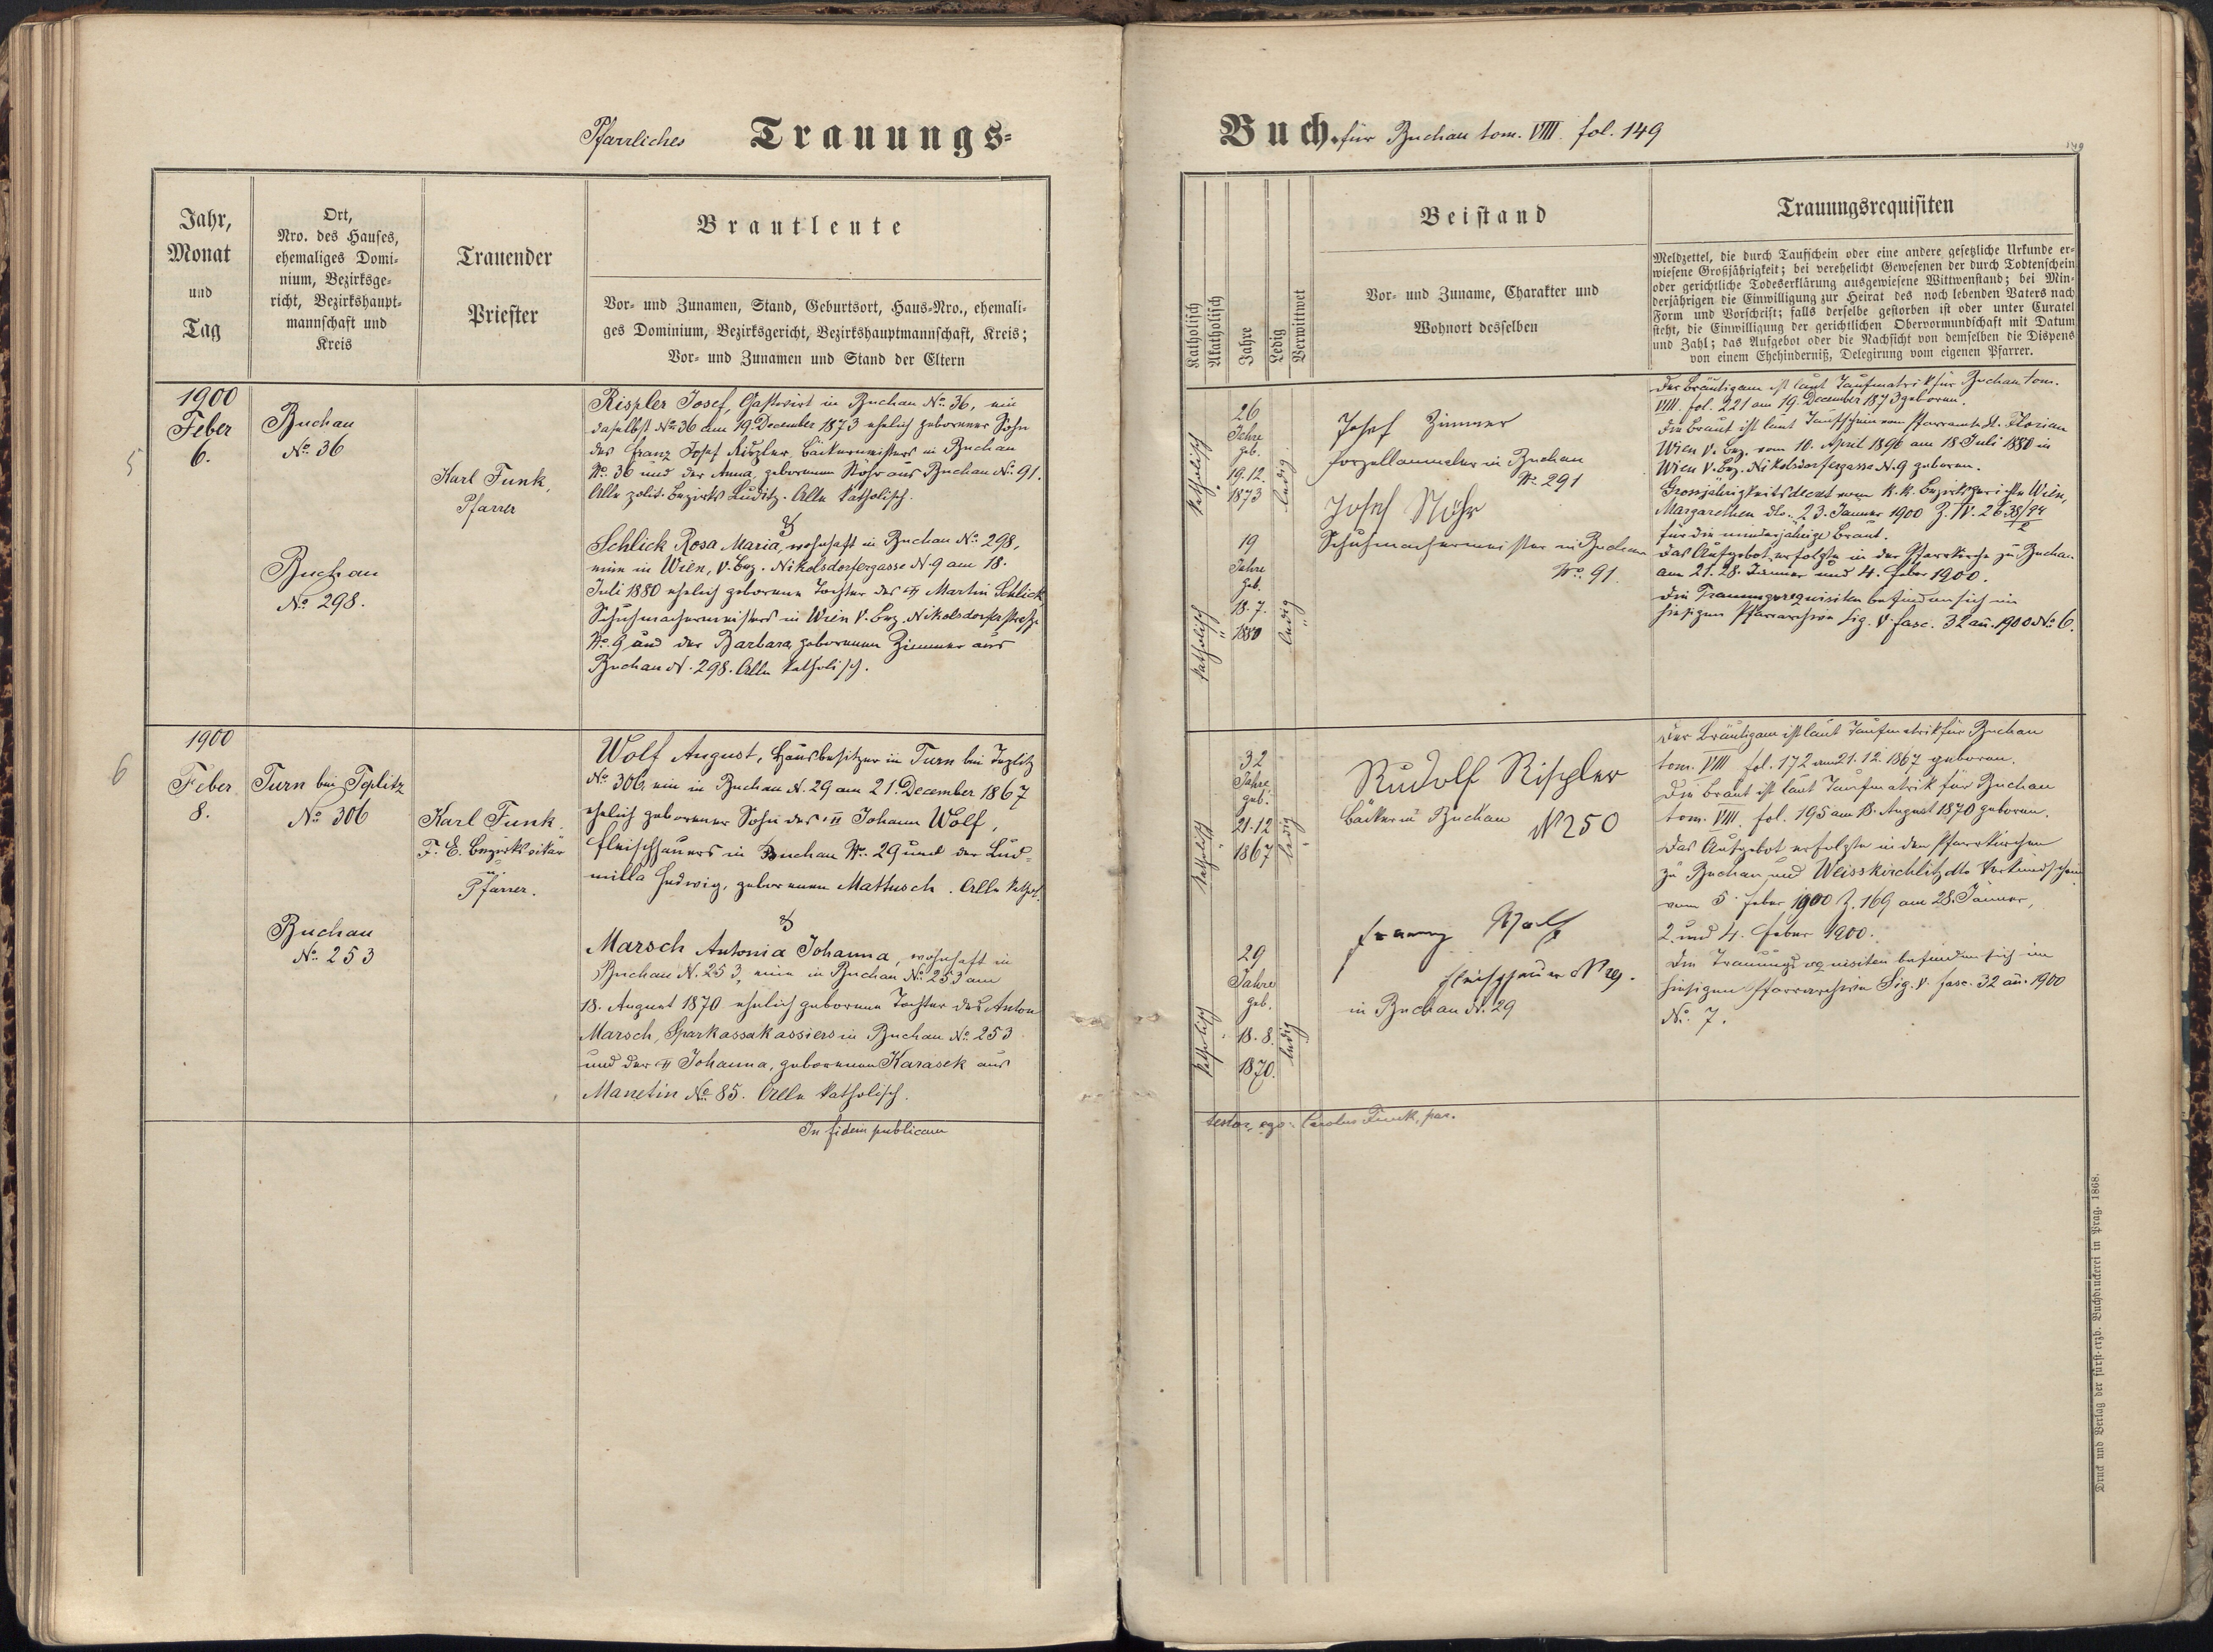 Pfarrliches Trauungs-
Jahr,
Monat
und
Tag
Ort,
Nro. des Hauses,
ehemaliges Domi-
nium, Bezirksge-
richt, Bezirkshaupt-
mannschaft und
Kreis
Trauender
Priester
Brautleute
Vor- und Zunamen, Stand, Geburtsort, Haus-Nro., ehemali-
ges Dominium, Bezirksgericht, Bezirkshauptmannschaft, Kreis;
Vor- und Zunamen und Stand der Eltern
5
1900
Feber
6.
Buchau
No. 36
Buchau
No. 298.
Karl Funk,
Pfarrer
Rispler Josef, Gastwirt in Buchau No. 36, ein
daselbst No. 36 am 19. December 1873 ehelich geborener Sohn
des Franz Josef Rispler, Bäckermeisters in Buchau
No. 36 und der Anna, geborenen Stöhr aus Buchau No. 91.
Alle polit. Bezirks Luditz. Alle katholisch.
&
Schlick Rosa Maria, wohnhaft in Buchau No. 298,
eine in Wien, V. Bez. Nikolsdorfergasse N. 9 am 18.
Juli 1880 ehelich geborene Tochter des Martin Schlick
Schuhmachermeisters in Wien V. Bez. Nikolsdorferstrasse
No. 9 und der Barbara, geborenen Zimmer aus
Buchau N. 298. Alle katholisch.
6
1900
Feber
8.
Turn bei Teplitz
No. 306
Buchau
No. 253
Karl Funk,
F. E. Bezirksvikar
u.
Pfarrer.
Wolf August, Hausbesitzer in Turn bei Teplitz
No. 306, ein in Buchau N. 29 am 21. December 1867
ehelich geborener Sohn des Johann Wolf,
Fleischhauers in Buchau No. 29 und der Lud-
milla Hedwig, geborenen Mattusch. Alle kathol.
&
Marsch Antonia Johanna, wohnhaft in
Buchau N. 253, eine in Buchau No. 253 am
18. August 1870 ehelich geborene Tochter des Anton
Marsch, Sparkassakassiers in Buchau No. 253
und der Johanna, geborenen Karasek aus
Manetin No. 85. Alle katholisch.
In fidem publicam
Buch für Buchau tom. VIII. fol. 149
149
Katholisch
Akatholisch
Jahre
Ledig
Verwittwet
Beistand
Vor- und Zuname, Charakter und
Wohnort desselben
Trauungsrequisiten
Meldzettel, die durch Taufschein oder eine andere gesetzliche Urkunde er-
wiesene Großjährigkeit; bei verehelicht Gewesenen der durch Todtenschein
oder gerichtliche Todeserklärung ausgewiesene Wittwenstand; bei Min-
derjährigen die Einwilligung zur Heirat des noch lebenden Vaters nach
Form und Vorschrift; falls derselbe gestorben ist oder unter Curatel
steht, die Einwilligung der gerichtlichen Obervormundschaft mit Datum
und Zahl; das Aufgebot oder die Nachsicht von demselben die Dispens
von einem Ehehinderniß, Delegirung vom eigenen Pfarrer.
katholisch
26
Jahre
geb.
19.12.
1873
ledig
katholisch
19
Jahre
geb.
18.7.
1880
ledig
Josef Zimmer
Porzellanmaler in Buchau
No. 291
Josef Stöhr
Schuhmachermeister in Buchau
No. 91.
Der Bräutigam ist laut Taufmatrik für Buchau tom.
VIII. fol. 221 am 19. December 1873 geboren.
Die Braut ist laut Taufschein vom Pfarramte St. Florian
Wien V. Bez. vom 10. April 1896 am 18. Juli 1880 in
Wien V. Bez. Nikolsdorfergasse N. 9 geboren.
Grossjährigkeitsdecret vom k. k. Bezirksgerichte Wien,
Margarethen dto. 23. Jänner 1900 Z. IV. 26 38/94
für die minderjährige Braut.
Das Aufgebot erfolgte in der Pfarrkirche zu Buchau
am 21. 28. Jänner und 4. Feber 1900.
Die Trauungsrequisiten befinden sich im
hiesigen Pfarrarchive Sig. V. fasc. 32 an. 1900 No. 6.
katholisch
32
Jahre
geb.
21.12
1867
ledig
katholisch
29
Jahre
geb.
18.8.
1870.
ledig
Rudolf Rispler
Bäcker in Buchau N 250
Franz Wolf
Fleischhauer N 29.
in Buchau N. 29
Der Bräutigam ist laut Taufmatrik für Buchau
tom. VIII fol. 172 am 21.12.1867 geboren.
Die Braut ist laut Taufmatrik für Buchau
tom. VIII. fol. 195 am 18. August 1870 geboren.
Das Aufgebot erfolgte in den Pfarrkirchen
zu Buchau und Weisskirchlitz dto Verkündschein
vom 5. Feber 1900 Z. 169 am 28. Jänner,
2. und 4. Feber 1900.
Die Trauungsrequisiten befinden sich im
hiesigen Pfarrarchive Sig. V. fasc. 32 an. 1900
No. 7.
testor ego: Carolus Funk, par.
Druck und Verlag der fürst-erzb. Buchdruckerei in Prag. 1868.